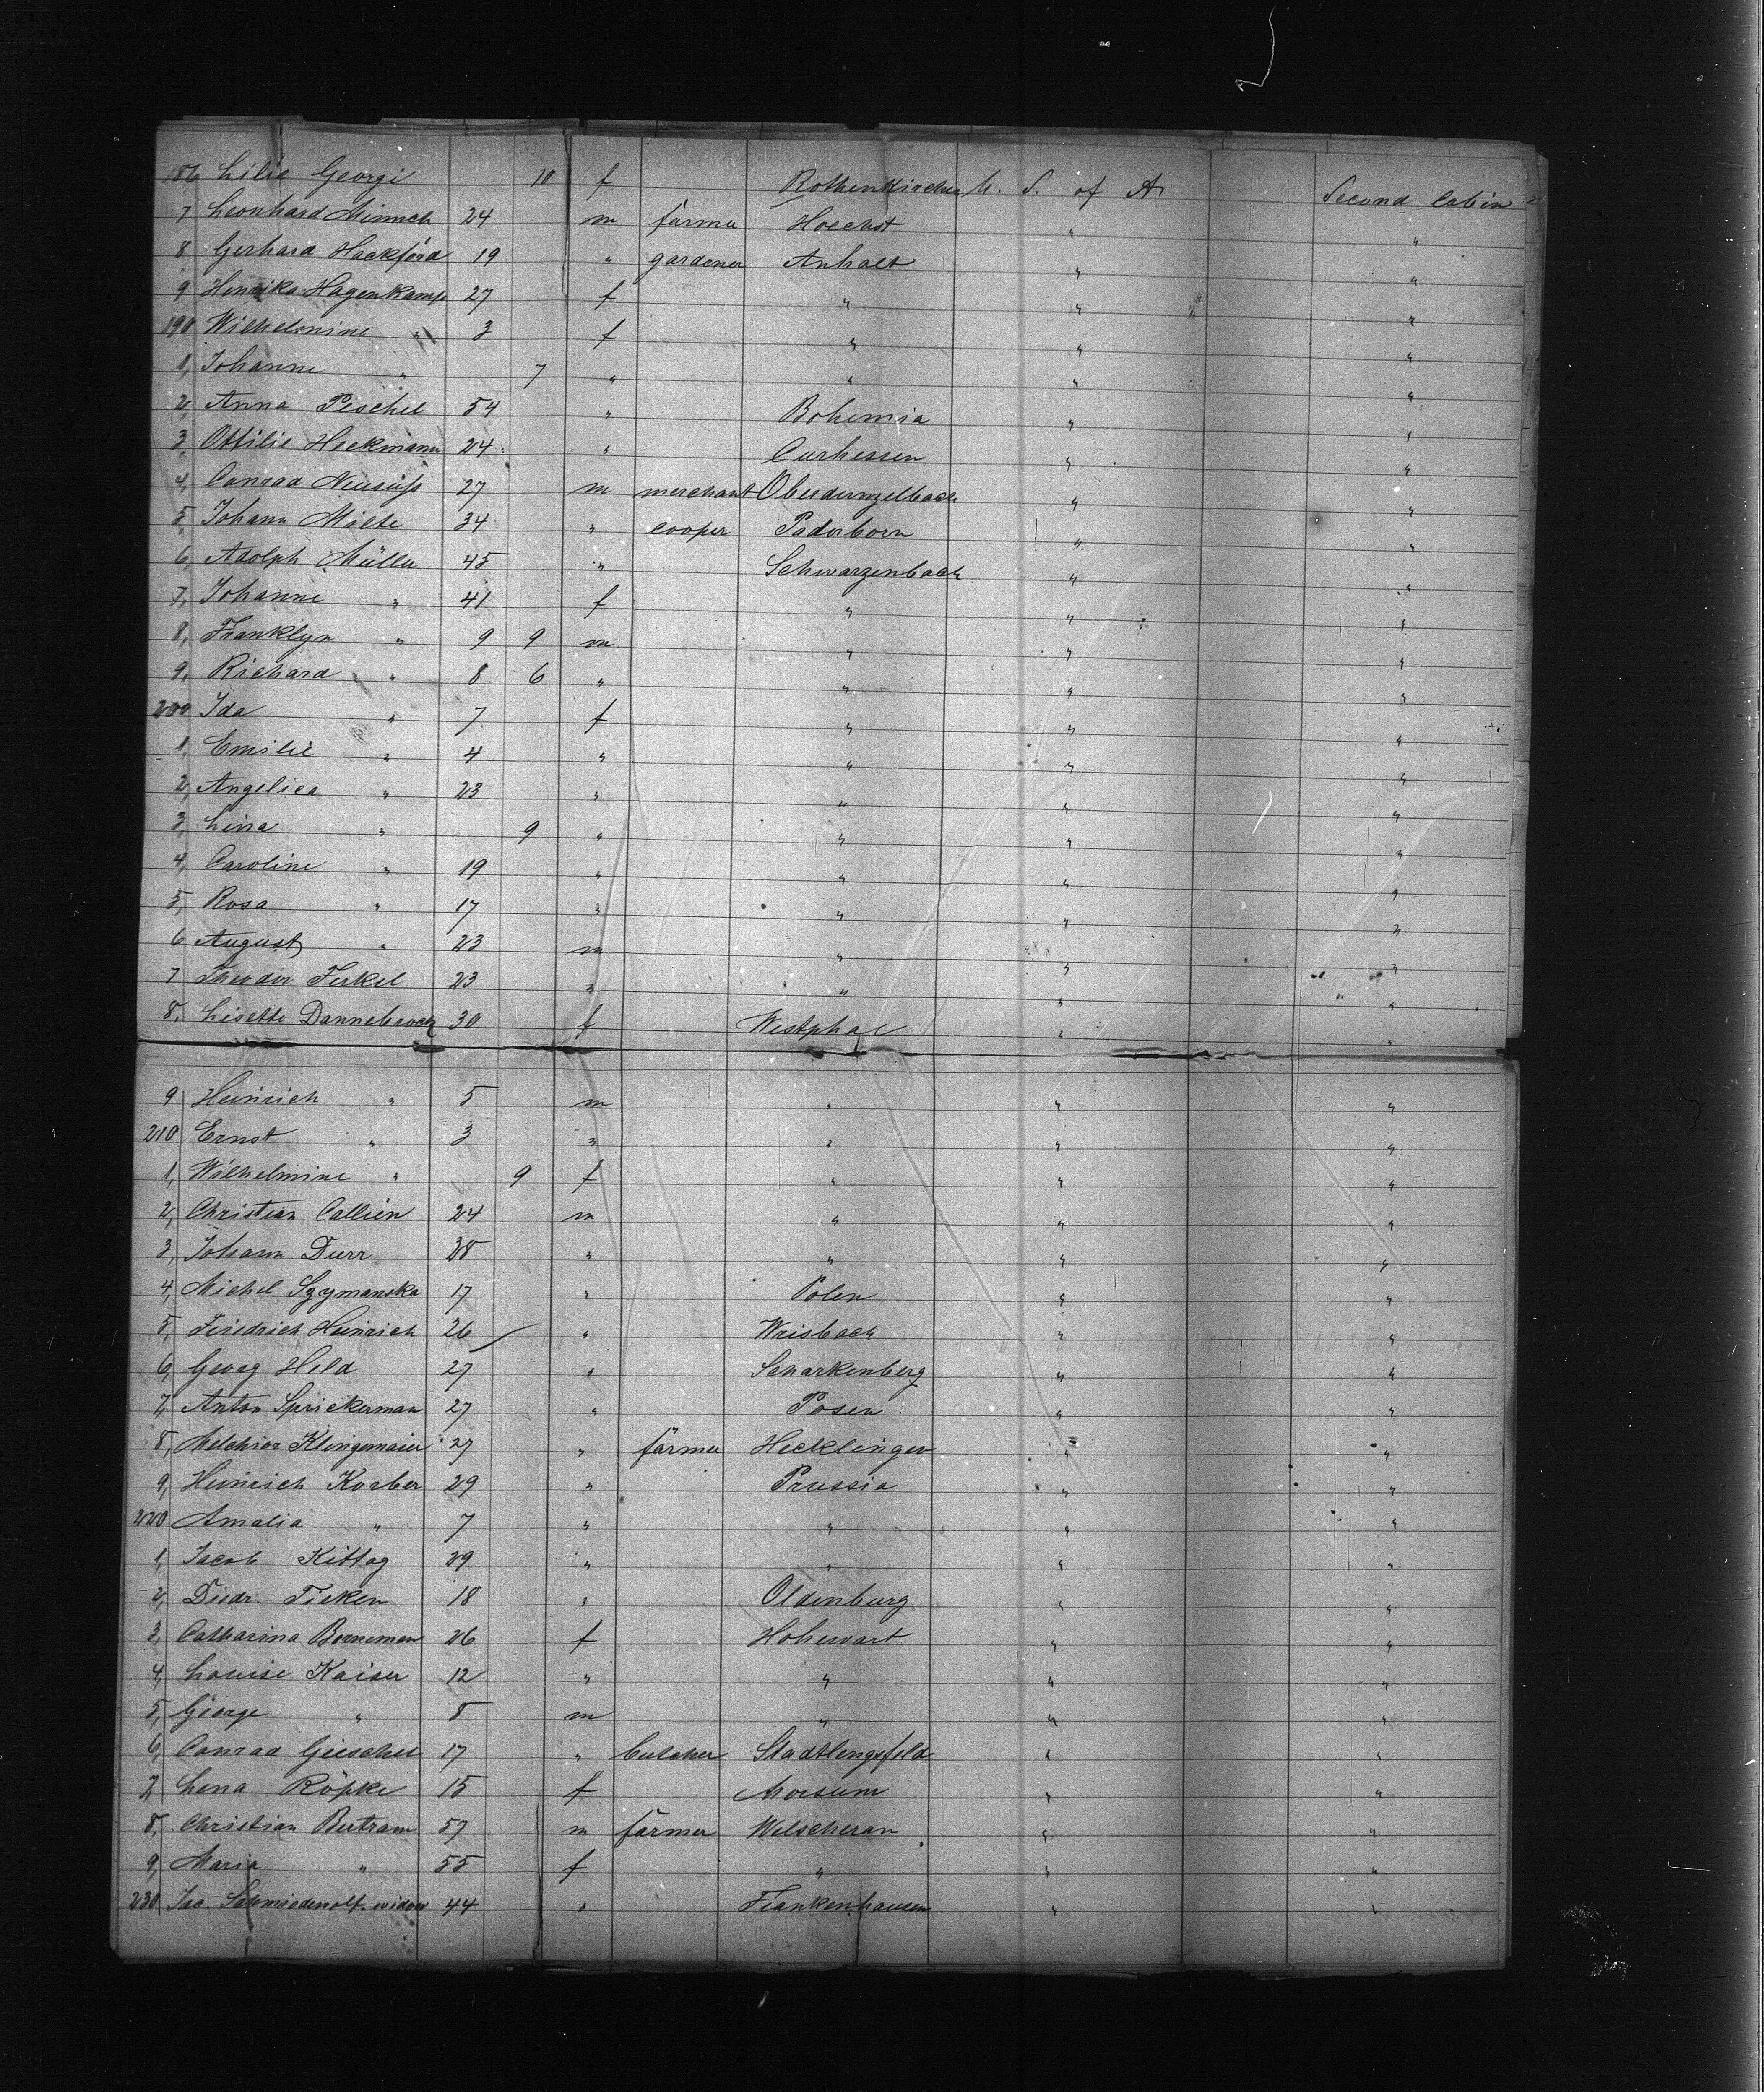 186 Lilie Georgi 10 f Rothenkirchen U. S. of A. Second Cabin
7 Leonhard Minnich 24 m farmer Hoechst " "
8 Gerhard Hackford 19 " gardener Anhalt " "
9 Henrika Hagenkamp 27 f " " "
190 Wilhelmine " 3 f " " "
1, Johanne " 7 " " " "
2, Anna Peschel 54 " Bohemia " "
3, Ottilie Heckmann 24 " Curhessen " "
4, Conrad Neusüß 27 m merchant " "
5, Johann Malte 34 " cooper Paderborn " "
6, Adolph Müller 45 " Schwarzenbach " "
7, Johanne " 41 f " " "
8, Franklyn " 9 9 m " " "
9, Richard " 8 6 " " " "
200 Ida " 7 f " " "
1, Emilie " 4 " " " "
2, Angelica " 23 " " " "
3, Lina " 9 " " " "
4, Caroline " 19 " " " "
5, Rosa " 17 " " " "
6 August " 23 m " " "
7 Theodor Ferkel 23 " " " "
8, Lisette Dannebrock 30 f Westphal " "
9 Heinrich " 5 m " " "
210 Ernst " 3 " " " "
1, Wilhelmine " 9 f " " "
2, Christian Callien 24 m " " "
3, Johann Durr 28 " " " "
4, Michel Szymanska 17 " Polen " "
5, Friedrich Heinrich 26 " Weisbach " "
6, Georg Held 27 " Scharkenberg " "
7, Anton Sprickerman 27 " Posen " "
8, Melchior Klingemaier 27 " farmer Hecklingen " "
9, Heinrich Korber 29 " Prussia " "
220 Amalia " 7 " " " "
1, Jacob Kittag 29 " " " "
2, Diedr. Ticken 18 " Oldenburg " "
3, Catharina Borneman 26 f Hohewart " "
4, Louise Kaiser 12 " " " "
5, George " 8 m " " "
6, Conrad Gieschel 17 " butcher Stadtlengsfeld " "
7, Lena Röpke 15 f Morsum " "
8, Christian Bertram 57 m farmer Welscheran " "
9, Maria " 55 f " " "
230 Jac. widow 44 " Frankenhausen " "